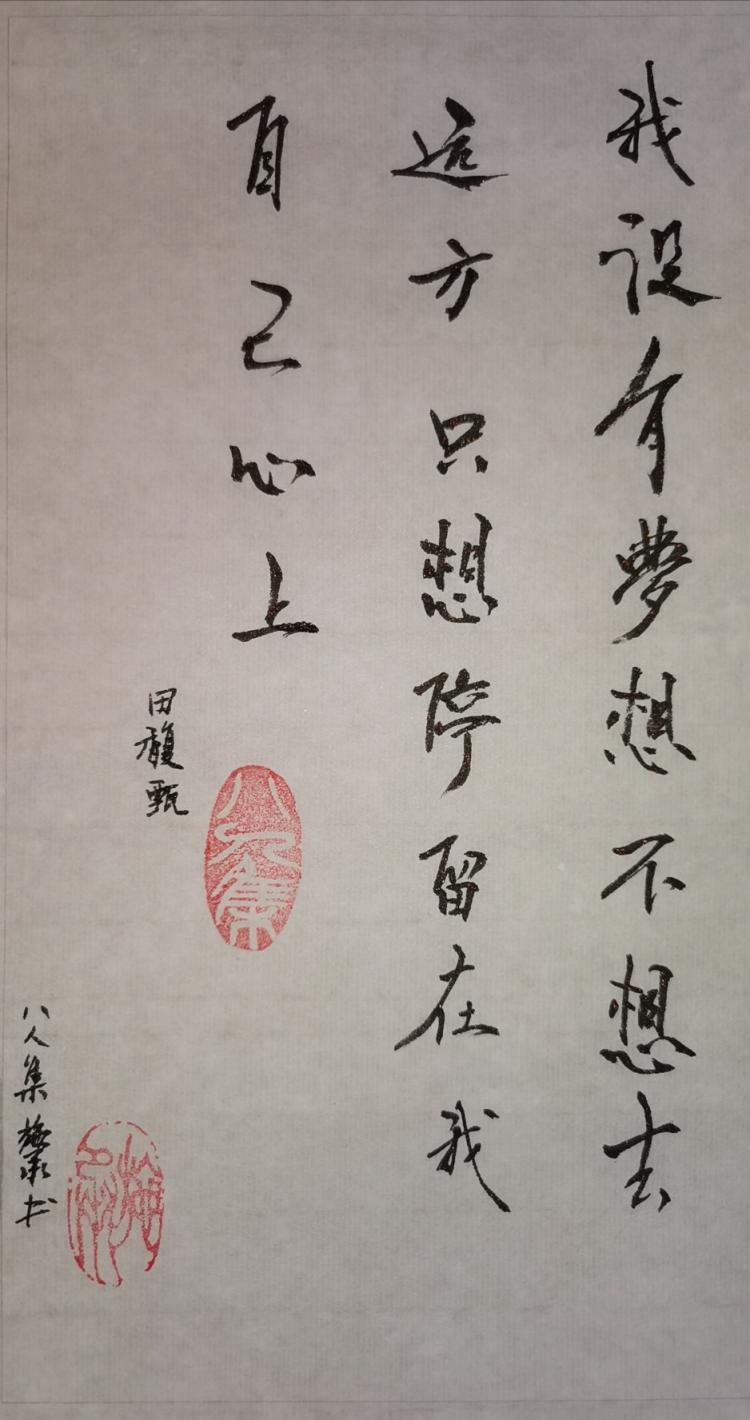 我没有夢想不想去
遠方只想停留在我
自己心上
田馥甄
八人集
八人集梅书